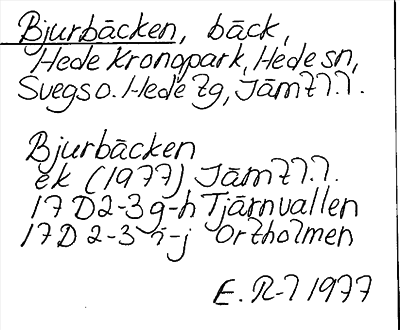 Bjurbäcken, bäck,
Hede Kronopark, Hede sn,
Svegs o. Hede tg, Jämtl.l.
Bjurbäcken
ek (1977) Jämtl.l.
17 D 2-3 g-h Tjärnvallen
17 D 2-3 i-j Ortholmen
E. R-l 1977